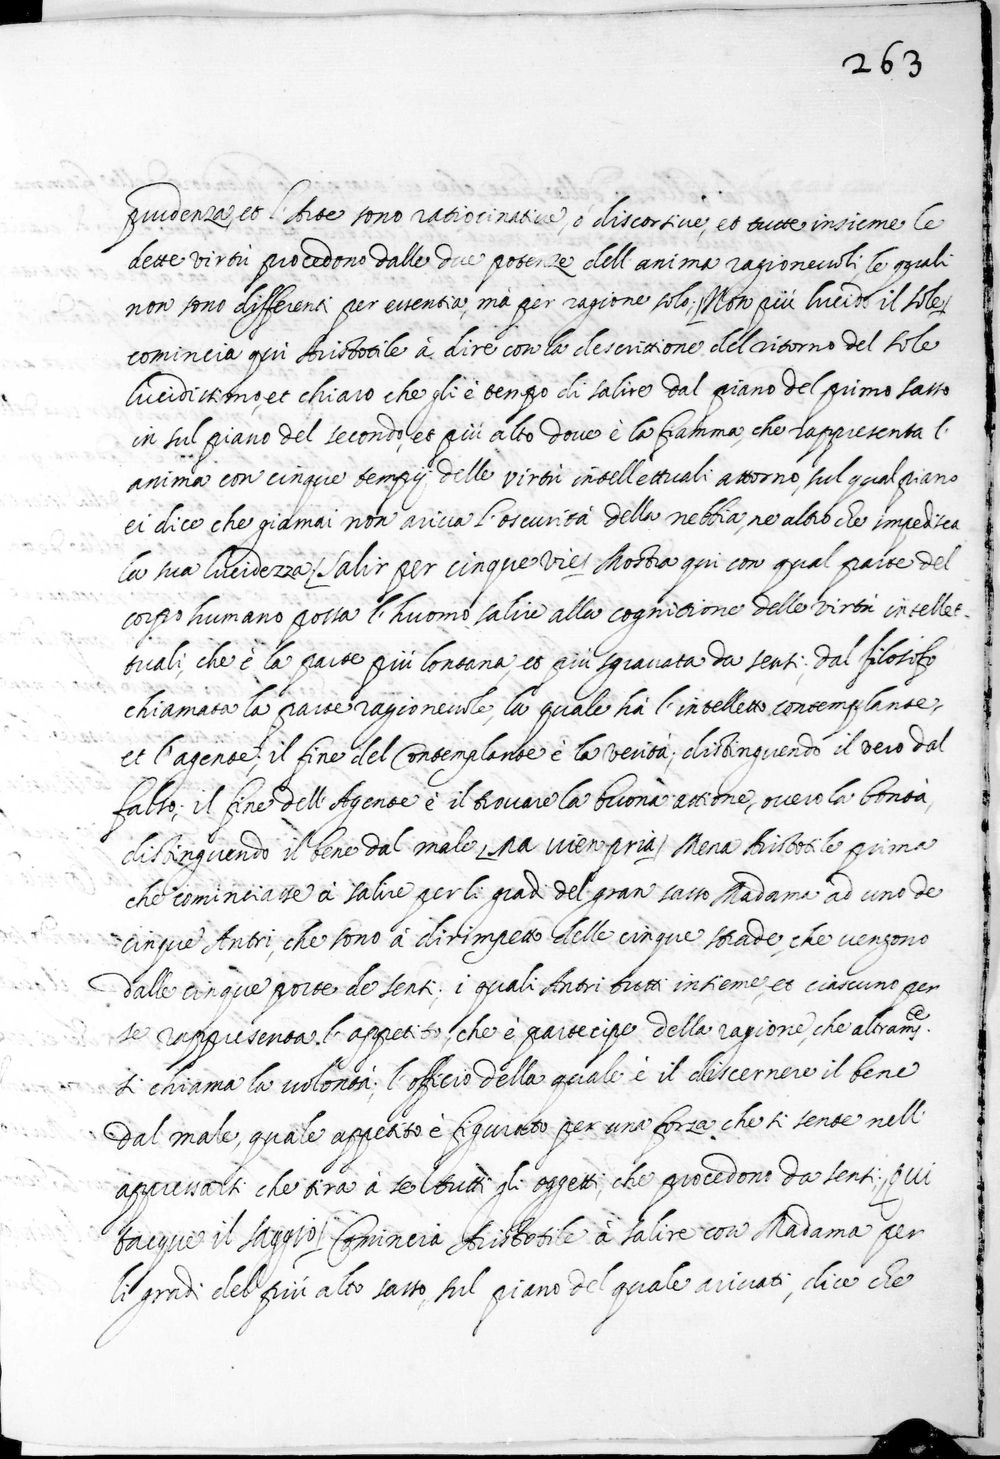 263
prudenza, et l'Arte sono ratiocinative, ò discorsive, et tutte insieme le
dette virtù procedono dalle due potenze dell'anima ragionevoli le quali
non sono differenti per essentia, mà per ragione solo; /Non più lucido il sole/
comincia qui Aristotile à dire con la descrittione del ritorno del sole
lucidissimo, et chiaro che gli è tempo di salire dal piano del primo sasso
in sul piano del secondo, et più alto dove è la fiamma, che rappresenta l'
anima con cinque tempij delle virtù intellettuali attorno, sul qual piano
ei dice che giamai non arriva l'oscurità della nebbia, ne altro che impedisca
la sua lucidezza /Salir per cinque vie/ Mostra qui con qual parte del
corpo humano possa l'huomo salire alla cognitione delle virtù intellet-
tuali, che è la parte più lontana, et più sgravata da sensi; dal filosofo
chiamata la parte ragionevole, la quale hà l'intelletto contemplante,
et l'agente; il fine del Contemplante è la verità; distinguendo il vero dal
falso; il fine dell'Agente è il trovare la buona attione, overo la bontà,
distinguendo il bene dal male /Ma vien pria/ Mena Aristotile prima
che cominciasse à salire per li gradi del gran sasso Madama ad uno de
cinque Antri, che sono à dirimpetto delle cinque strade, che vengono
dalle cinque porte de sensi; i quali Antri tutti insieme, et ciascuno per
se rappresenta l'appetito, che è partecipe della ragione, che altram.ce
si chiama la volontà; l'officio della quale è il discernere il bene
dal male, quale appetito è figurato per una forza che si sente nell'
appressarsi che tira à se tutti gli oggetti, che procedono da sensi; /Qui
tacque il saggio/ Comincia Aristotile à salire con Madama per
li gradi del più alto sasso, sul piano del quale arrivati, dice che